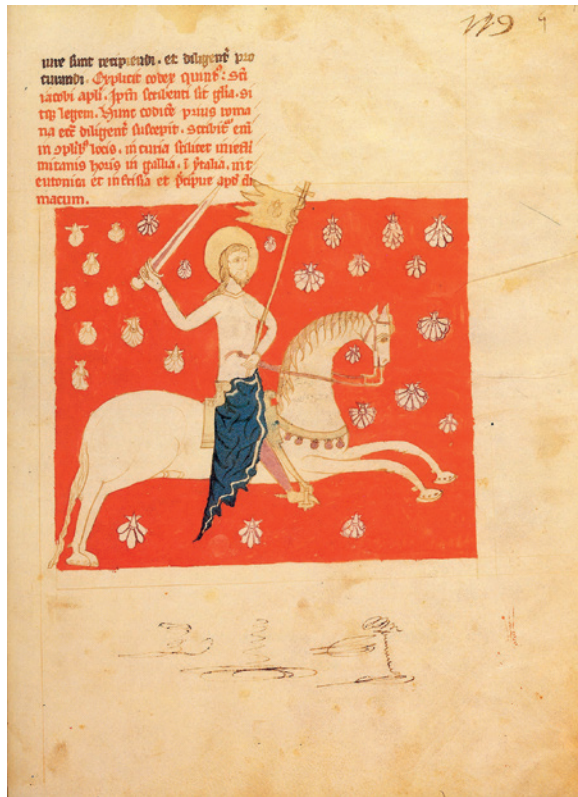 119
iure sunt recipiendi. et diligenť pro
curandi. Explicit codex quintꝰ: sc̄i
iacobi apl̄i. Ip̄m scribenti sit gl̄ia. si
tqꝫ legenti. Hunc codicē prius roma
na ecc̄ diligenť suscepit. scribiť eni
in 9plibꝰ locis. in curia scilicet in iesoli
mitanis horis in gallia. i ytalia. in t
eutonica et in frisia et p̄cipue apd̄ clu
niacum.